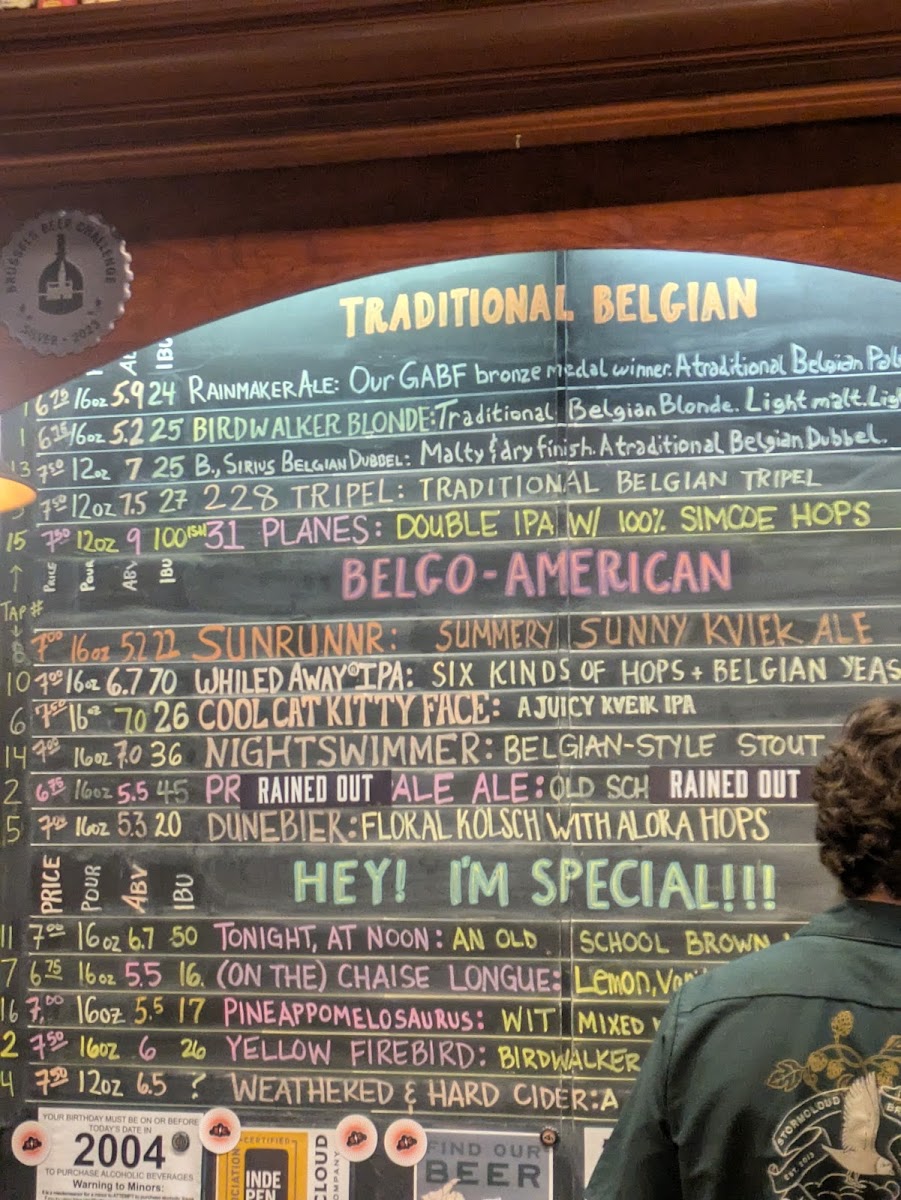 BRUSSELS BEER CHALLENGE
SILVER · 2023
TRADITIONAL BELGIAN
IBU
6 16oz 5.9 24 RAINMAKER ALE: Our GABF bronze medal winner. A traditional Belgian Pal
6 16oz 5.2 25 BIRDWALKER BLONDE: Traditional Belgian Blonde. Light malt. Lig
13 7.50 12oz 7 25 B., SIRIUS BELGIAN DUBBEL: Malty & dry finish. A traditional Belgian Dubbel.
7.50 12oz 7.5 27 228 TRIPEL: TRADITIONAL BELGIAN TRIPEL
15 7.50 12oz 9 100(ish) 31 PLANES: DOUBLE IPA W/ 100% SIMCOE HOPS
PRICE POUR ABV IBU BELGO-AMERICAN
TAP #
8 7.00 16oz 5.2 22 SUNRUNNR: SUMMERY SUNNY KVIEK ALE
10 7.00 16oz 6.7 70 WHILED AWAY IPA: SIX KINDS OF HOPS + BELGIAN YEAS
6 7.50 16oz 7.0 26 COOL CAT KITTY FACE: A JUICY KVEIK IPA
14 7.00 16oz 7.0 36 NIGHTSWIMMER: BELGIAN-STYLE STOUT
2 6.75 16oz 5.5 45 PR RAINED OUT ALE ALE: OLD SCH RAINED OUT
5 16oz 5.3 20 DUNEBIER: FLORAL KÖLSCH WITH ALORA HOPS
PRICE POUR ABV IBU HEY! I'M SPECIAL!!!
11 7.00 16oz 6.7 50 TONIGHT, AT NOON: AN OLD SCHOOL BROWN
7 6.75 16oz 5.5 16. (ON THE) CHAISE LONGUE: Lemon, Van
16 7.00 16oz 5.5 17 PINEAPPOMELOSAURUS: WIT MIXED
2 7.50 16oz 6 26 YELLOW FIREBIRD: BIRDWALKER
4 7.50 12oz 6.5 ? WEATHERED & HARD CIDER: A
YOUR BIRTHDAY MUST BE ON OR BEFORE
TODAY'S DATE IN
2004
TO PURCHASE ALCOHOLIC BEVERAGES
Warning to Minors:
CERTIFIED
INDE
PEN
CIATION
CLOUD
COMPANY
FIND OUR
BEER
STORMCLOUD BR
EST. 2013